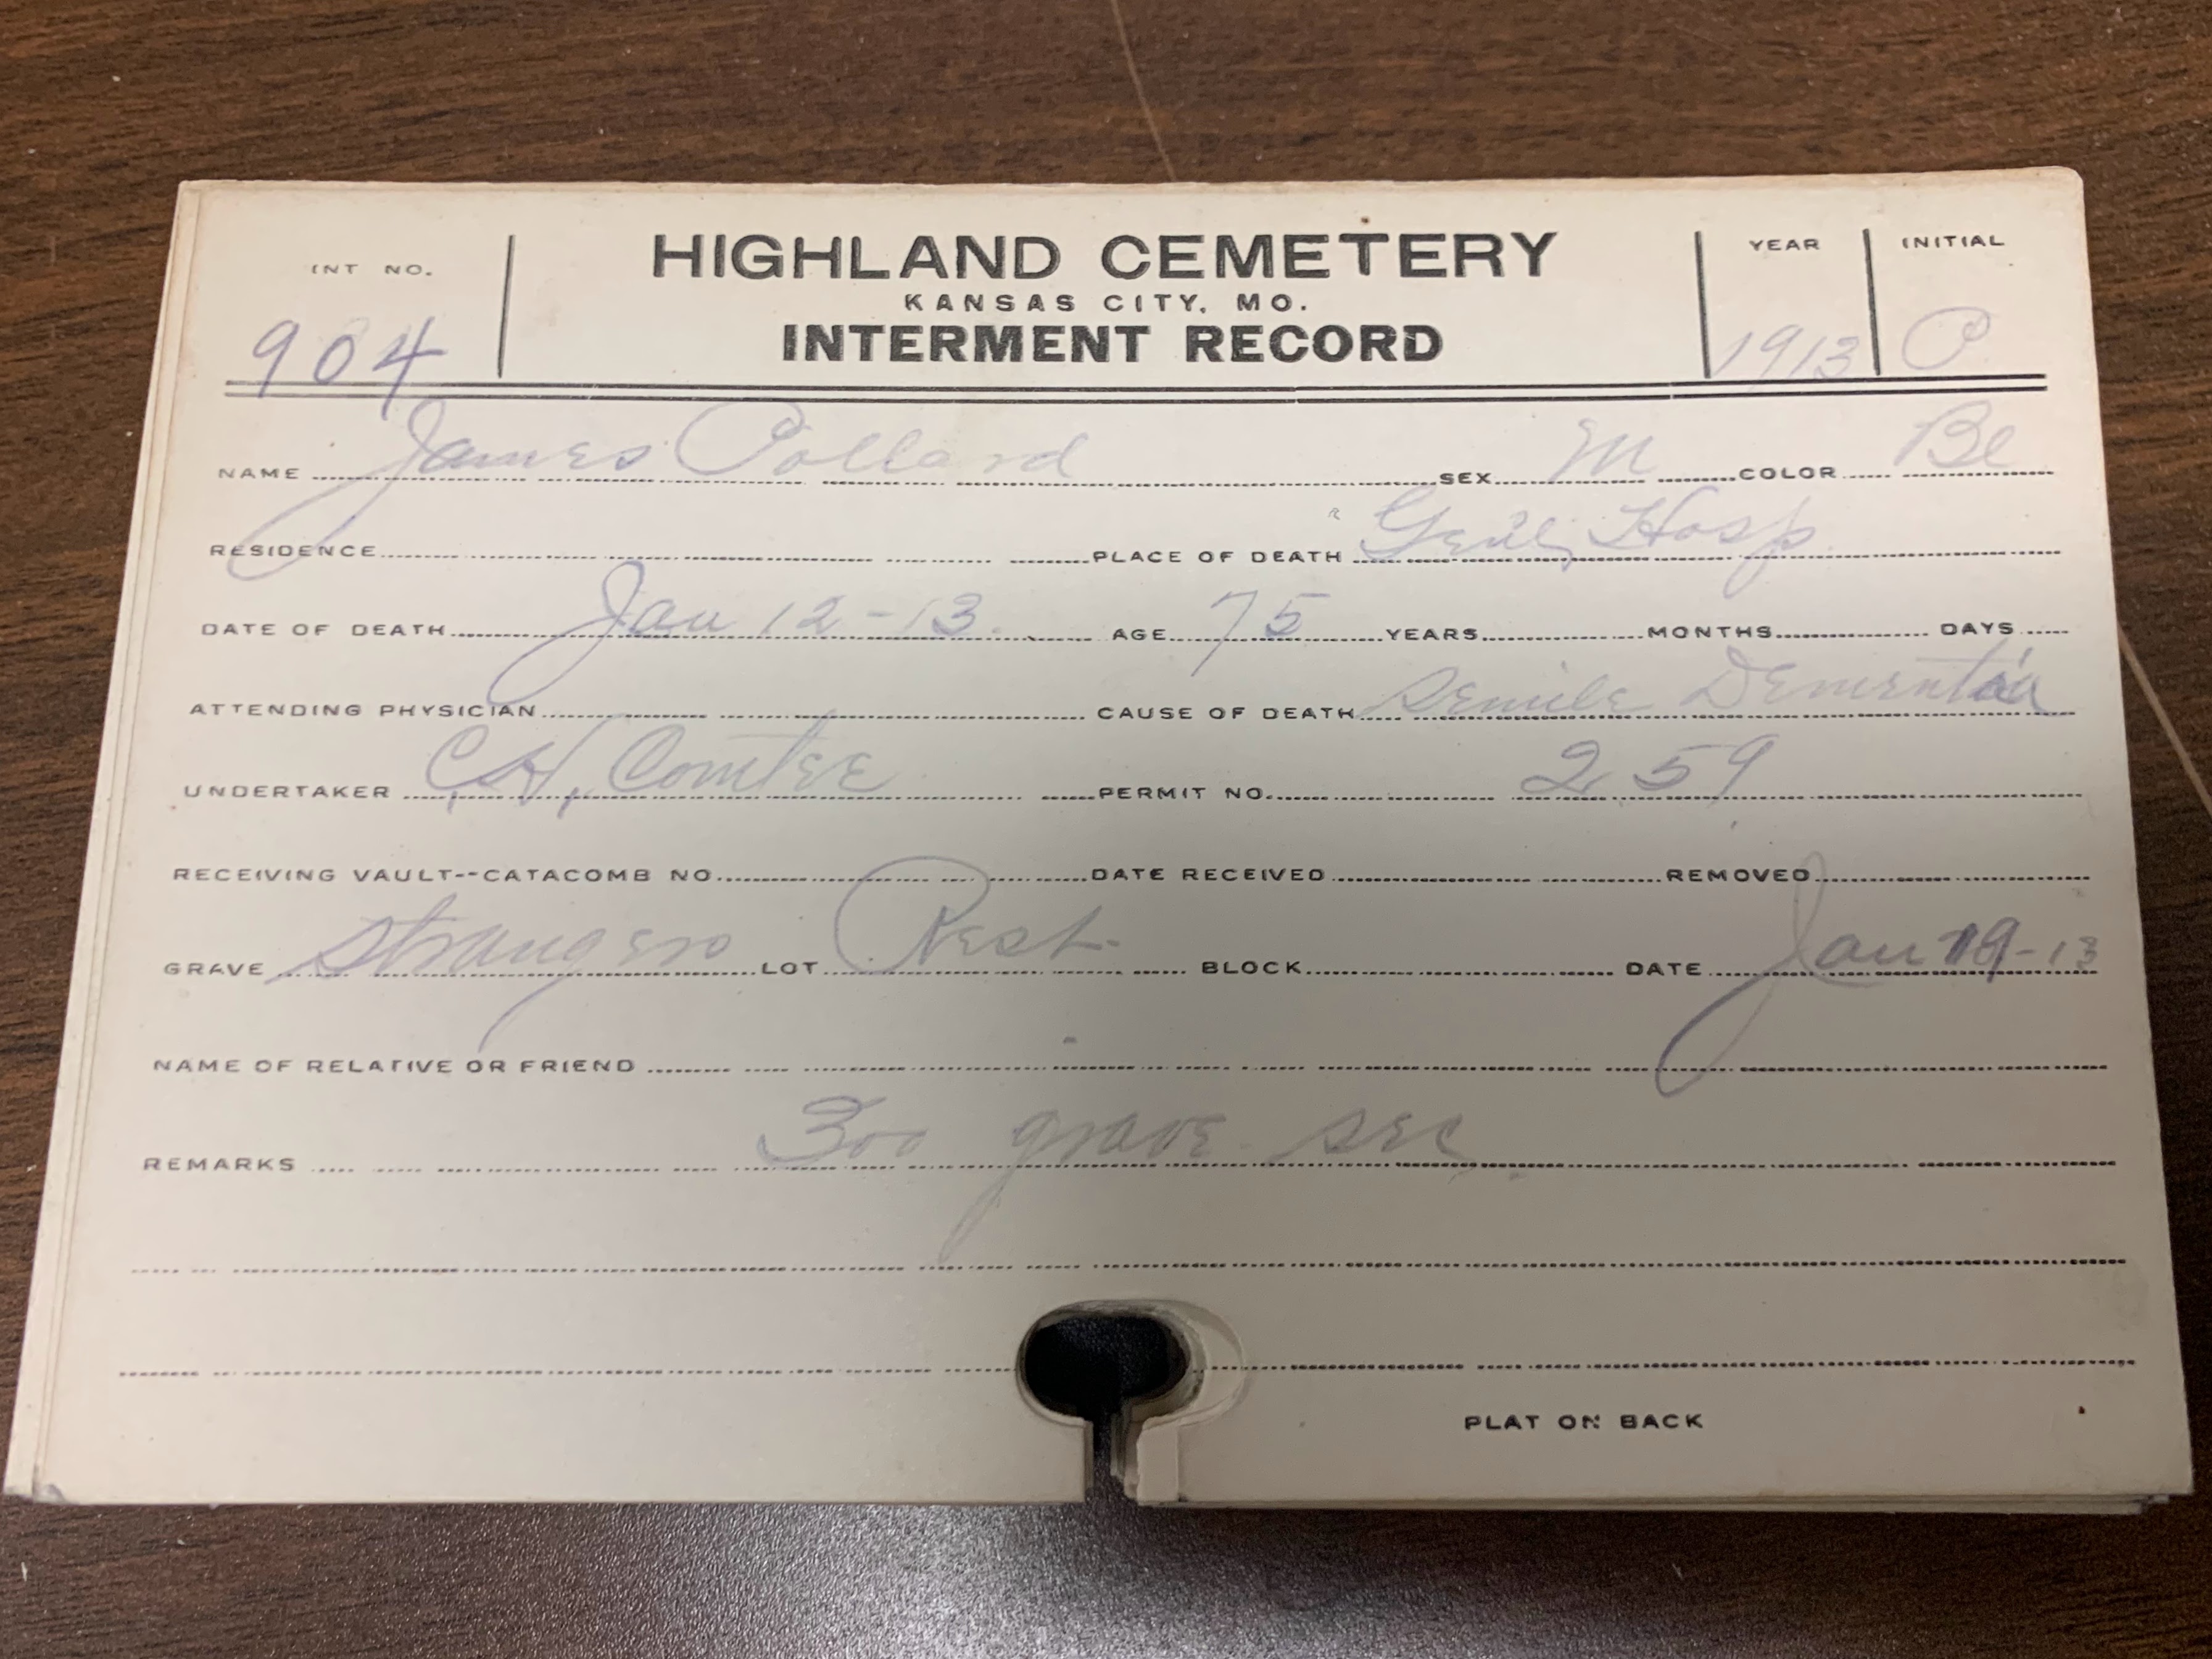 INT NO. HIGHLAND CEMETERY YEAR INITIAL
KANSAS CITY, MO.
904 INTERMENT RECORD 1913 P
NAME James Pollard SEX M COLOR Bl
RESIDENCE PLACE OF DEATH Genl, Hosp
DATE OF DEATH Jan 12-13. AGE 75 YEARS MONTHS DAYS
ATTENDING PHYSICIAN CAUSE OF DEATH Senile Dementia
UNDERTAKER C.H, Comtee PERMIT NO. 259
RECEIVING VAULT--CATACOMB NO. DATE RECEIVED REMOVED
GRAVE Strangers LOT Rest. BLOCK DATE Jan 19-13
NAME OF RELATIVE OR FRIEND
REMARKS 300 grave sec
PLAT ON BACK